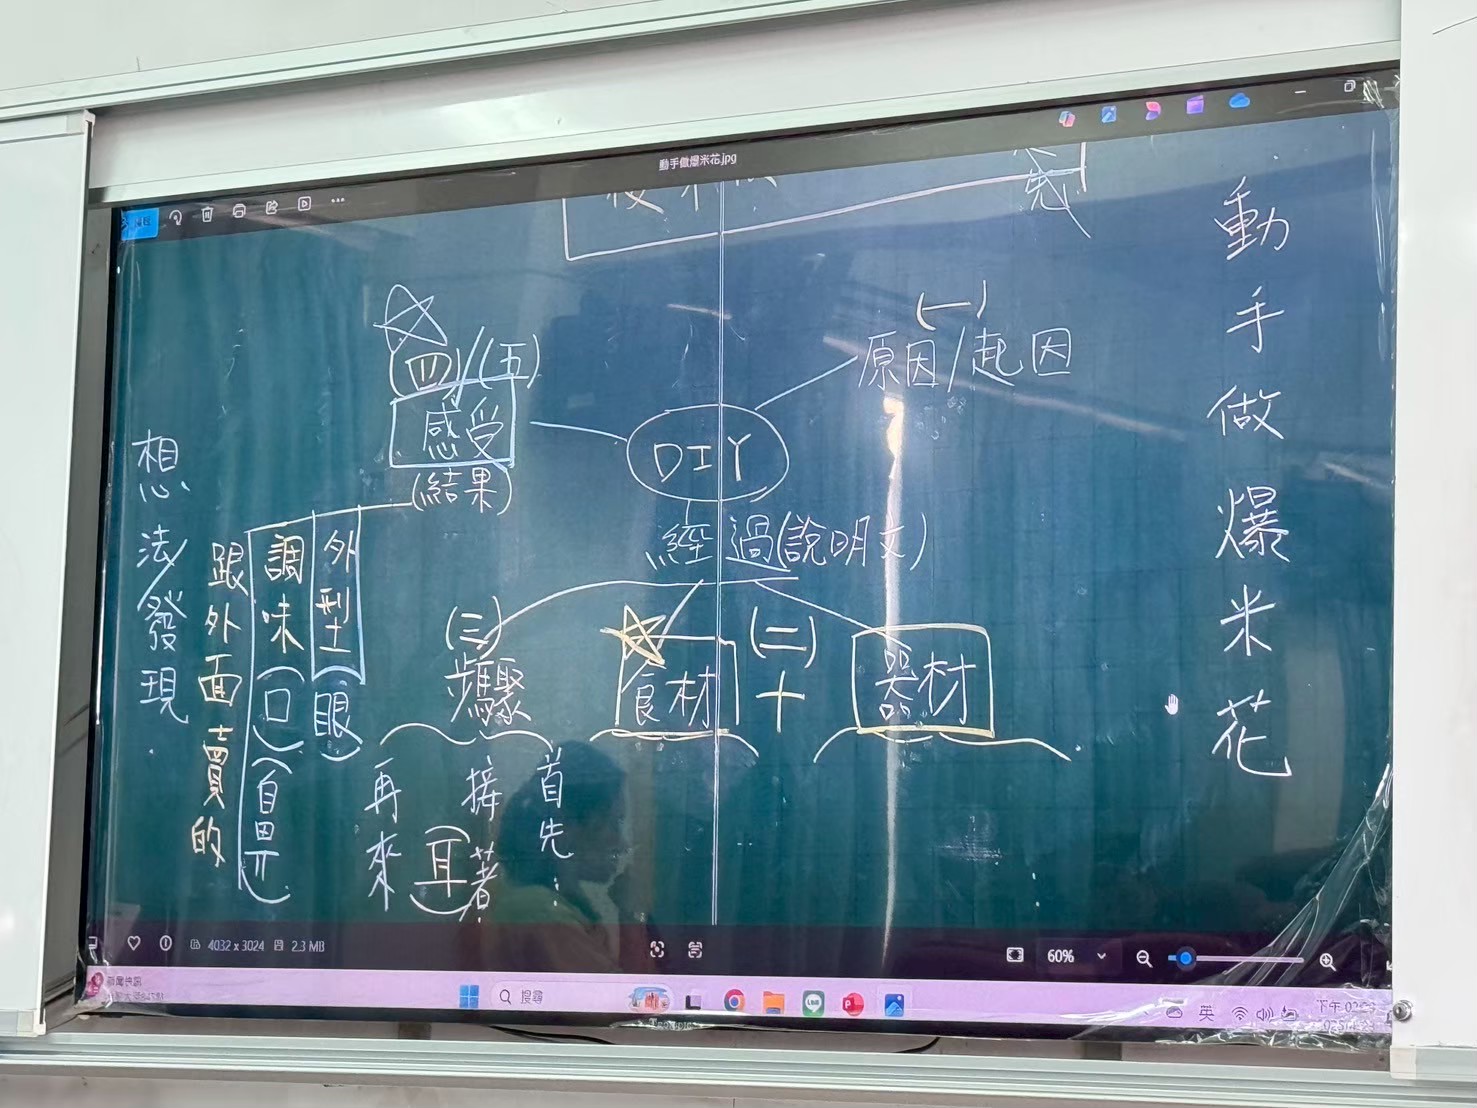 動手做爆米花.jpg
動手做爆米花
先
(一)
原因/起因
DIY
經過(說明文)
(二)
器材
+
食材
(三)
步驟
首先
接著
(耳)
再來
(四)/(五)
感受
(結果)
外型(眼)
調味(口)(自鼻)
跟外面賣的
想法/發現
4032 x 3024
2.3 MB
60%
搜尋
英